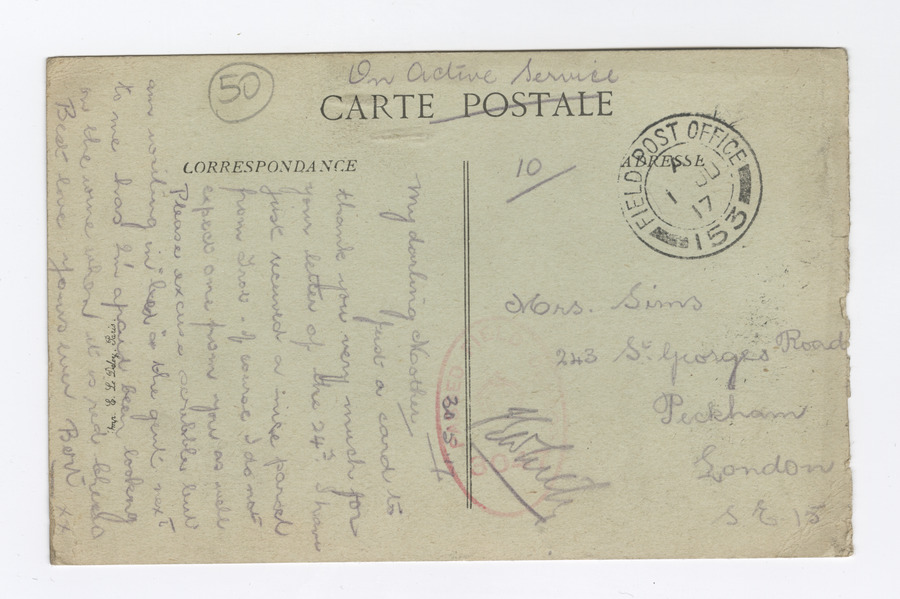 50
On Active Service
CARTE POSTALE
CORRESPONDANCE
ADRESSE
10
FIELD POST OFFICE
1
17
153
Mrs. Sims
243 St Georges Road
Peckham
London
S E 15
30 5 17
My darling Mother
Just a card to
thank you very much for
your letter of the 24th. I have
just received a nice parcel
from . Of course I do not
expect one from you as well
Please excuse scribble but
am writing in bed & the gent next
to me has I'm afraid been looking
on the wine when it is red
Best love yours ever xx